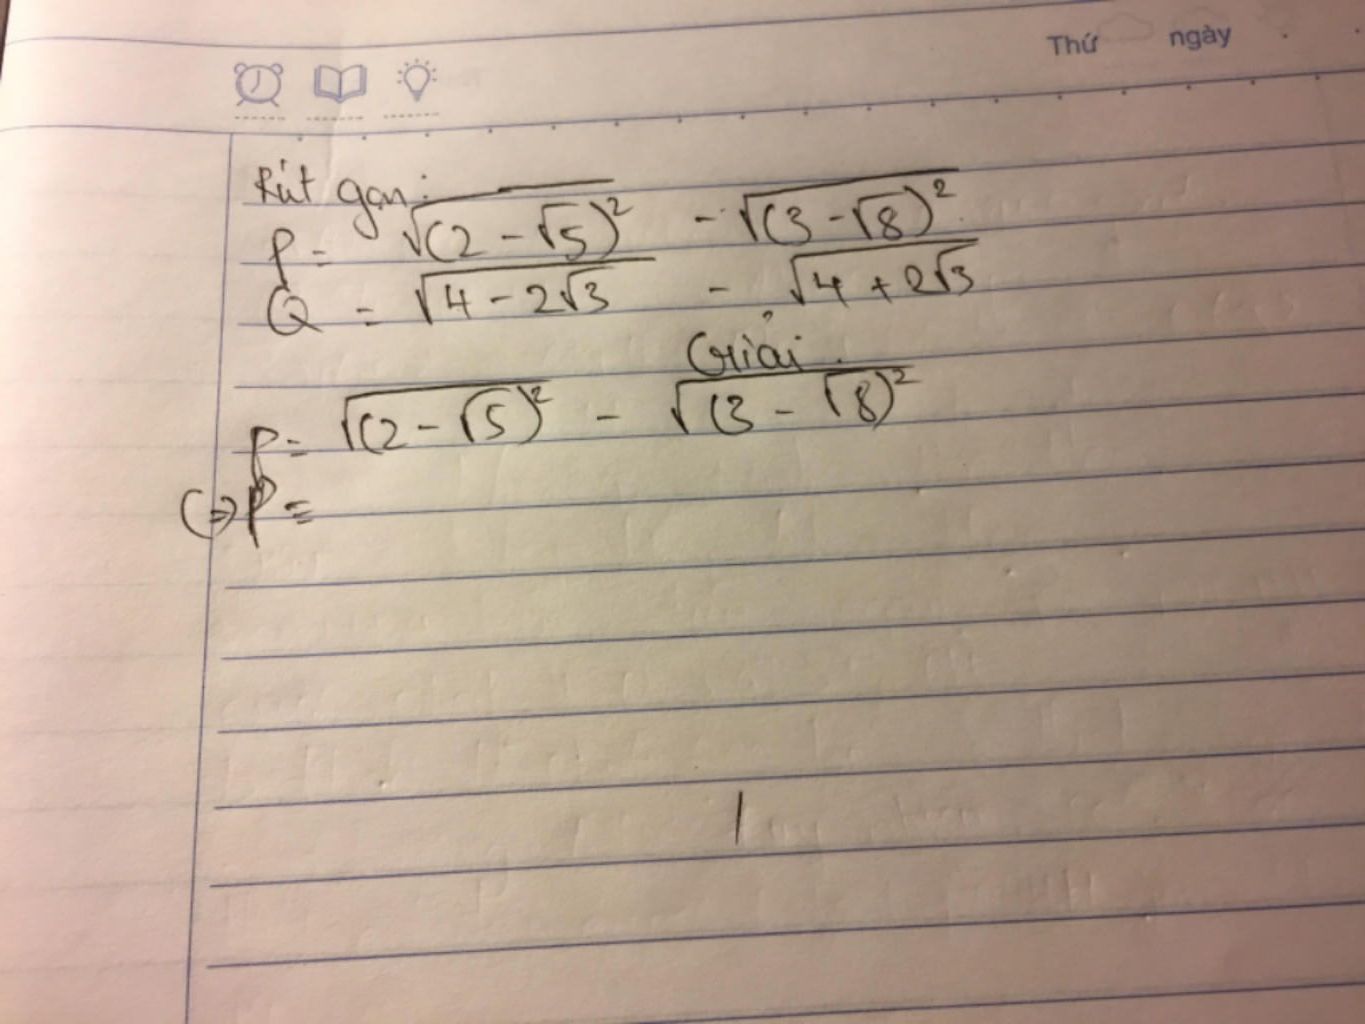 Thứ ngày
Rút gọn:
P = √(2 - √5)² - √(3 - √8)²
Q = √4 - 2√3 - √4 + 2√3
Giải.
P = √(2 - √5)² - √(3 - √8)²
(=) P =